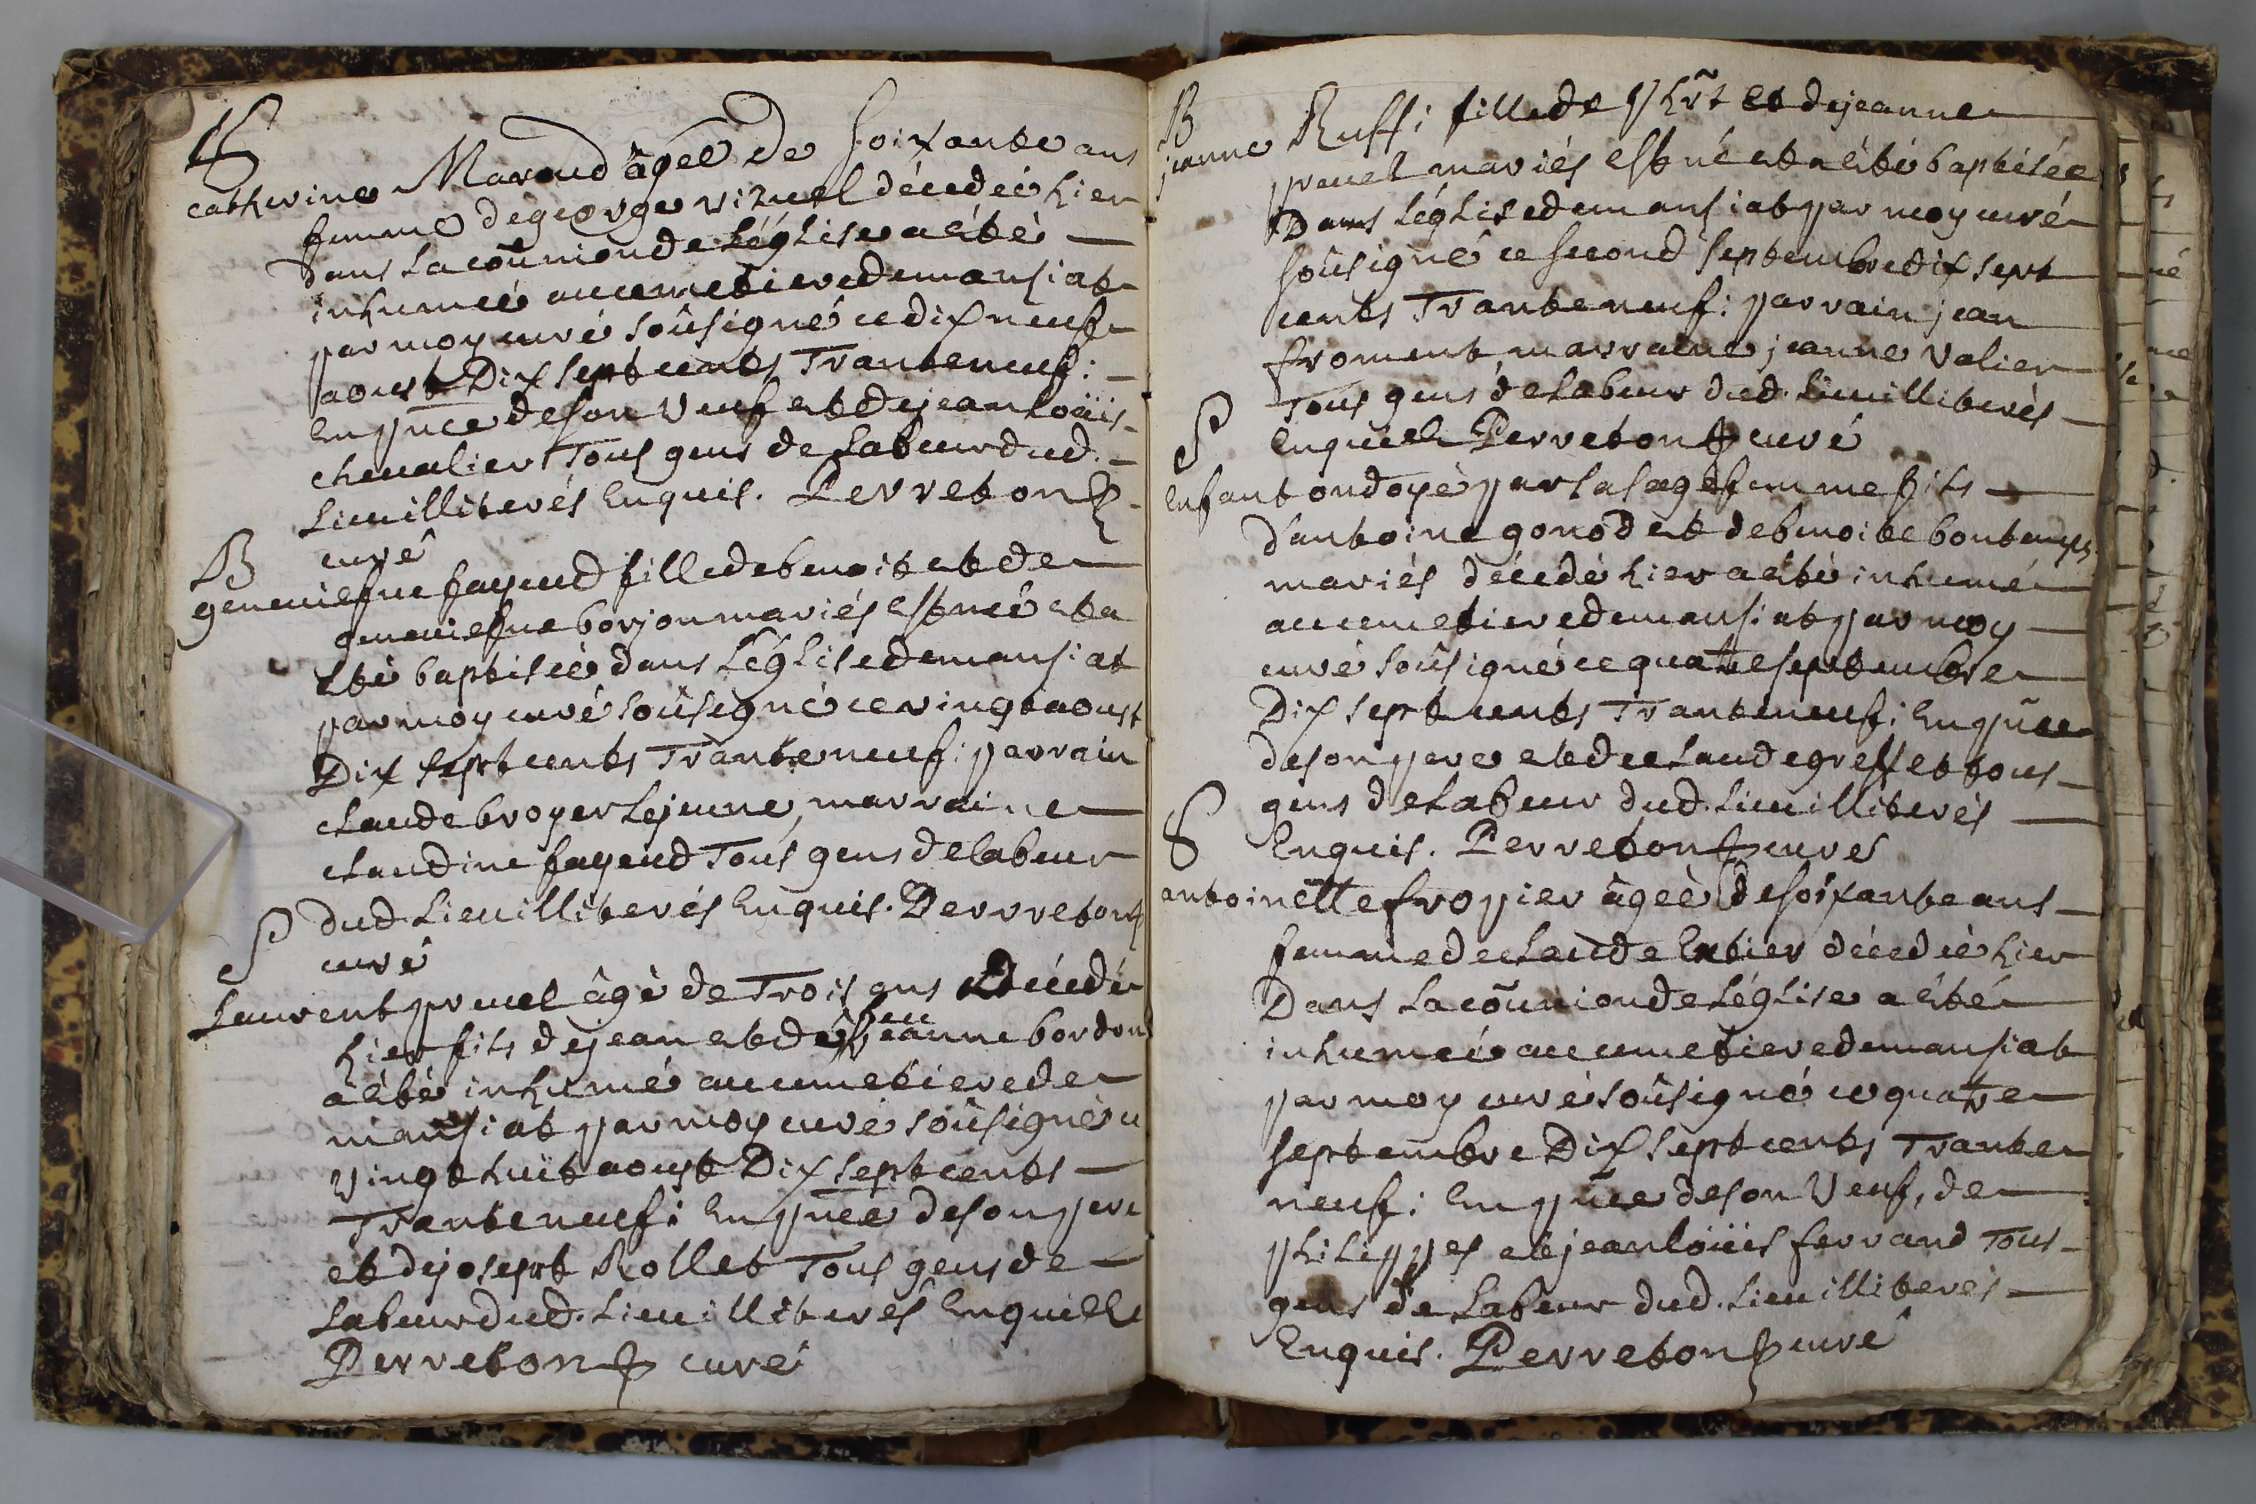 S
catherine Maraud âgeé de soixante ans
femme de george vizuel décedeé hier
dans la coûnion de léglise a été
inhumeé au cemetiere de mansiat
par moy curé soûsigné ce dix neuf
aoust Dix sept cents Trante neuf :
En pnce de son Veuf et de jean loüis
chevalier Tous gens de labeur dud.
Lieu illiterés Enquis. Perreton
curé
B
geneuiefue fayend fille de benoit et de
geneuiefue borjon mariés est neé et a
été baptiseé dans léglise de mansiat
par moy curé soûsigné ce vingt aoust
Dix sept cents Trante neuf : parrain
claude broyer lejeune, marraine
claudine fayend Tous gens de labeur
dud. Lieu illiterés Enquis. Perreton
curé
S
Laurent pruel âgé de Trois ans décedé
hier fils de jean et de feu jeanne bordon
a été inhumé au cemetiere de
mansiat par moy curé soûsigné ce
Vingt huit aoust Dix sept cents
Trante neuf : En pnce de son pere
et de josept Rollet Tous gens de
Labeur dud. Lieu illiterés Enquis
Perreton curé
B
jeanne Ruffi fille de phrt et de jeanne
pruel mariés est né et a été baptiseé
Dans léglise de mansiat par moy curé
soûsigné ce second septembre dix sept
cents Trante neuf : parrain jean
froment marraine jeanne Valier
Tous gens de labeur dud. Lieu illiterés
Enquis Perreton curé
S
Enfant ondoyé par la sage femme fils
d'antoine gonod et de benoite bontemps
mariés décedé hier a été inhumé
au cemetiere de mansiat par moy
curé soûsigné ce quatre septembre
Dix sept cents Trante neuf : En pnce
de son pere et de claude greffet tous
gens de labeur dud. Lieu illiterés
Enquis. Perreton curé
S
antoinette fropier âgeé de soixante ans
femme de claude décedeé hier
Dans la coûnion de léglise a été
inhumeé au cemetiere de mansiat
par moy curé soûsigné ce quatre
septembre Dix sept cents Trante
neuf : En pnce de son Veuf, de
philippes et jean loüis ferrand Tous
gens de labeur dud. Lieu illiterés
Enquis. Perreton curé